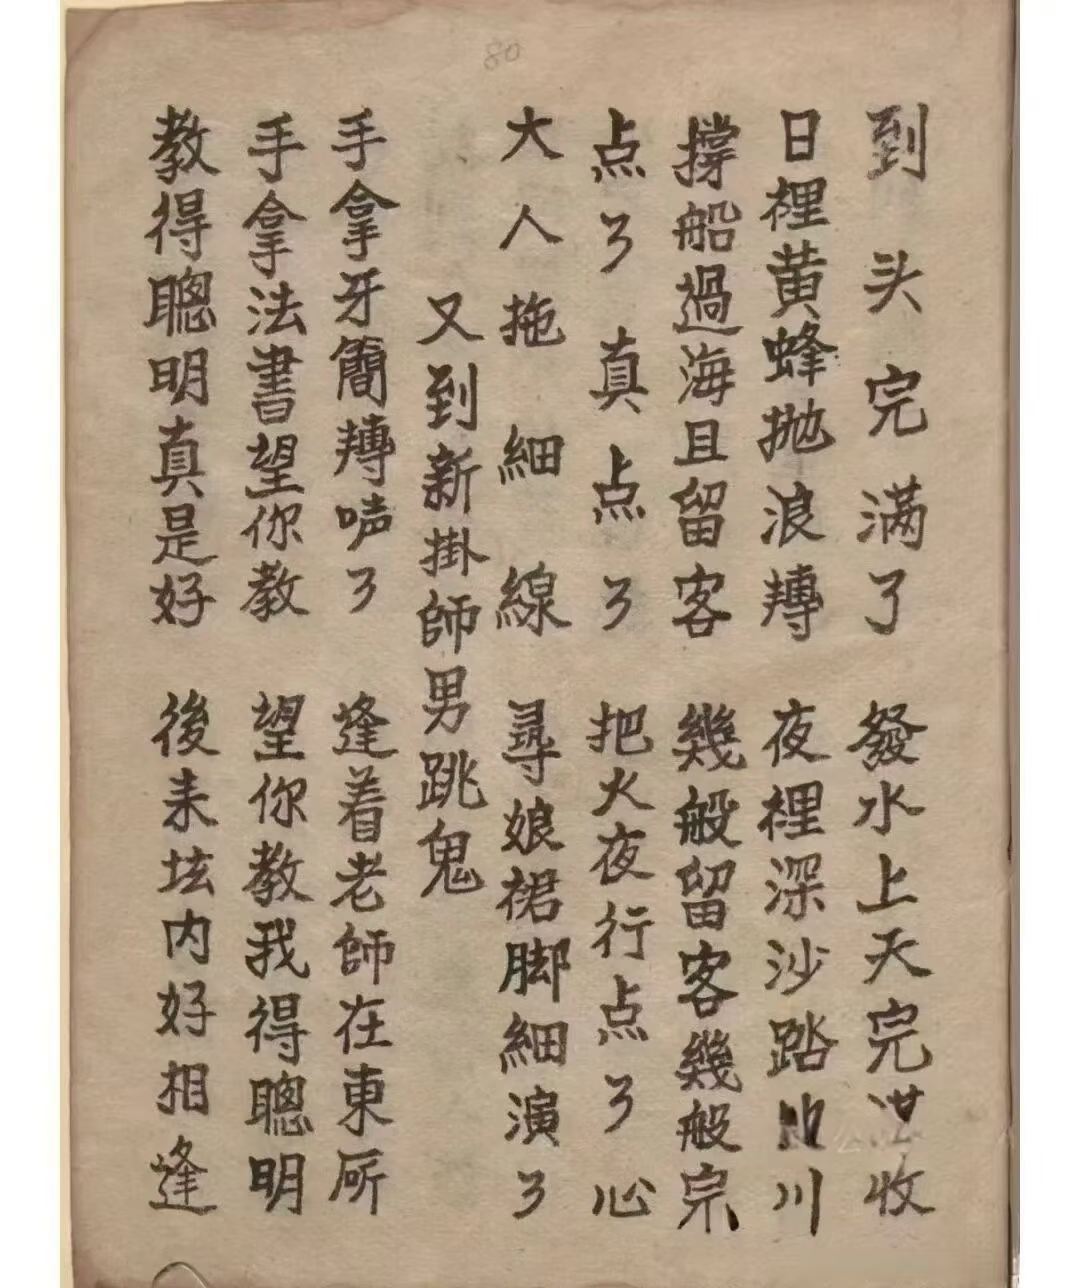 80
到头完满了 發水上天完 收
日裡黄蜂抛浪轉 夜裡深沙踏 川
撐船過海且留客 幾般留客幾般宗
点了真点了 把火夜行点了心
大人拖細線 尋娘裙脚細演了
又到新掛師男跳鬼
手拿牙簡轉吽了 逢着老師在東所
手拿法書望你教 望你教我得聰明
教得聰明真是好 後来坛内好相逢